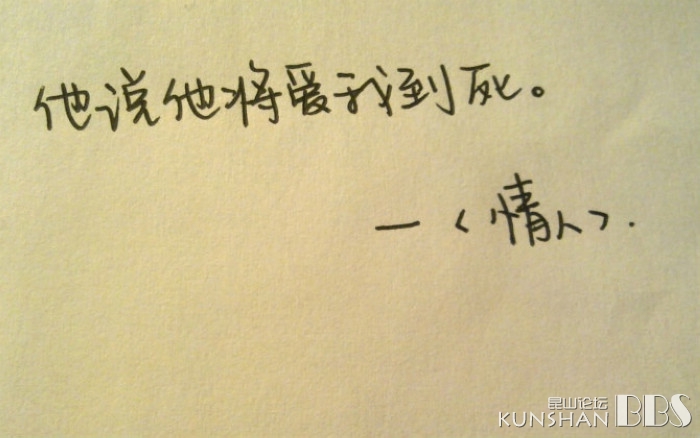 他说他将爱我到死。
—<情人>.
昆山论坛
KUNSHAN BBS